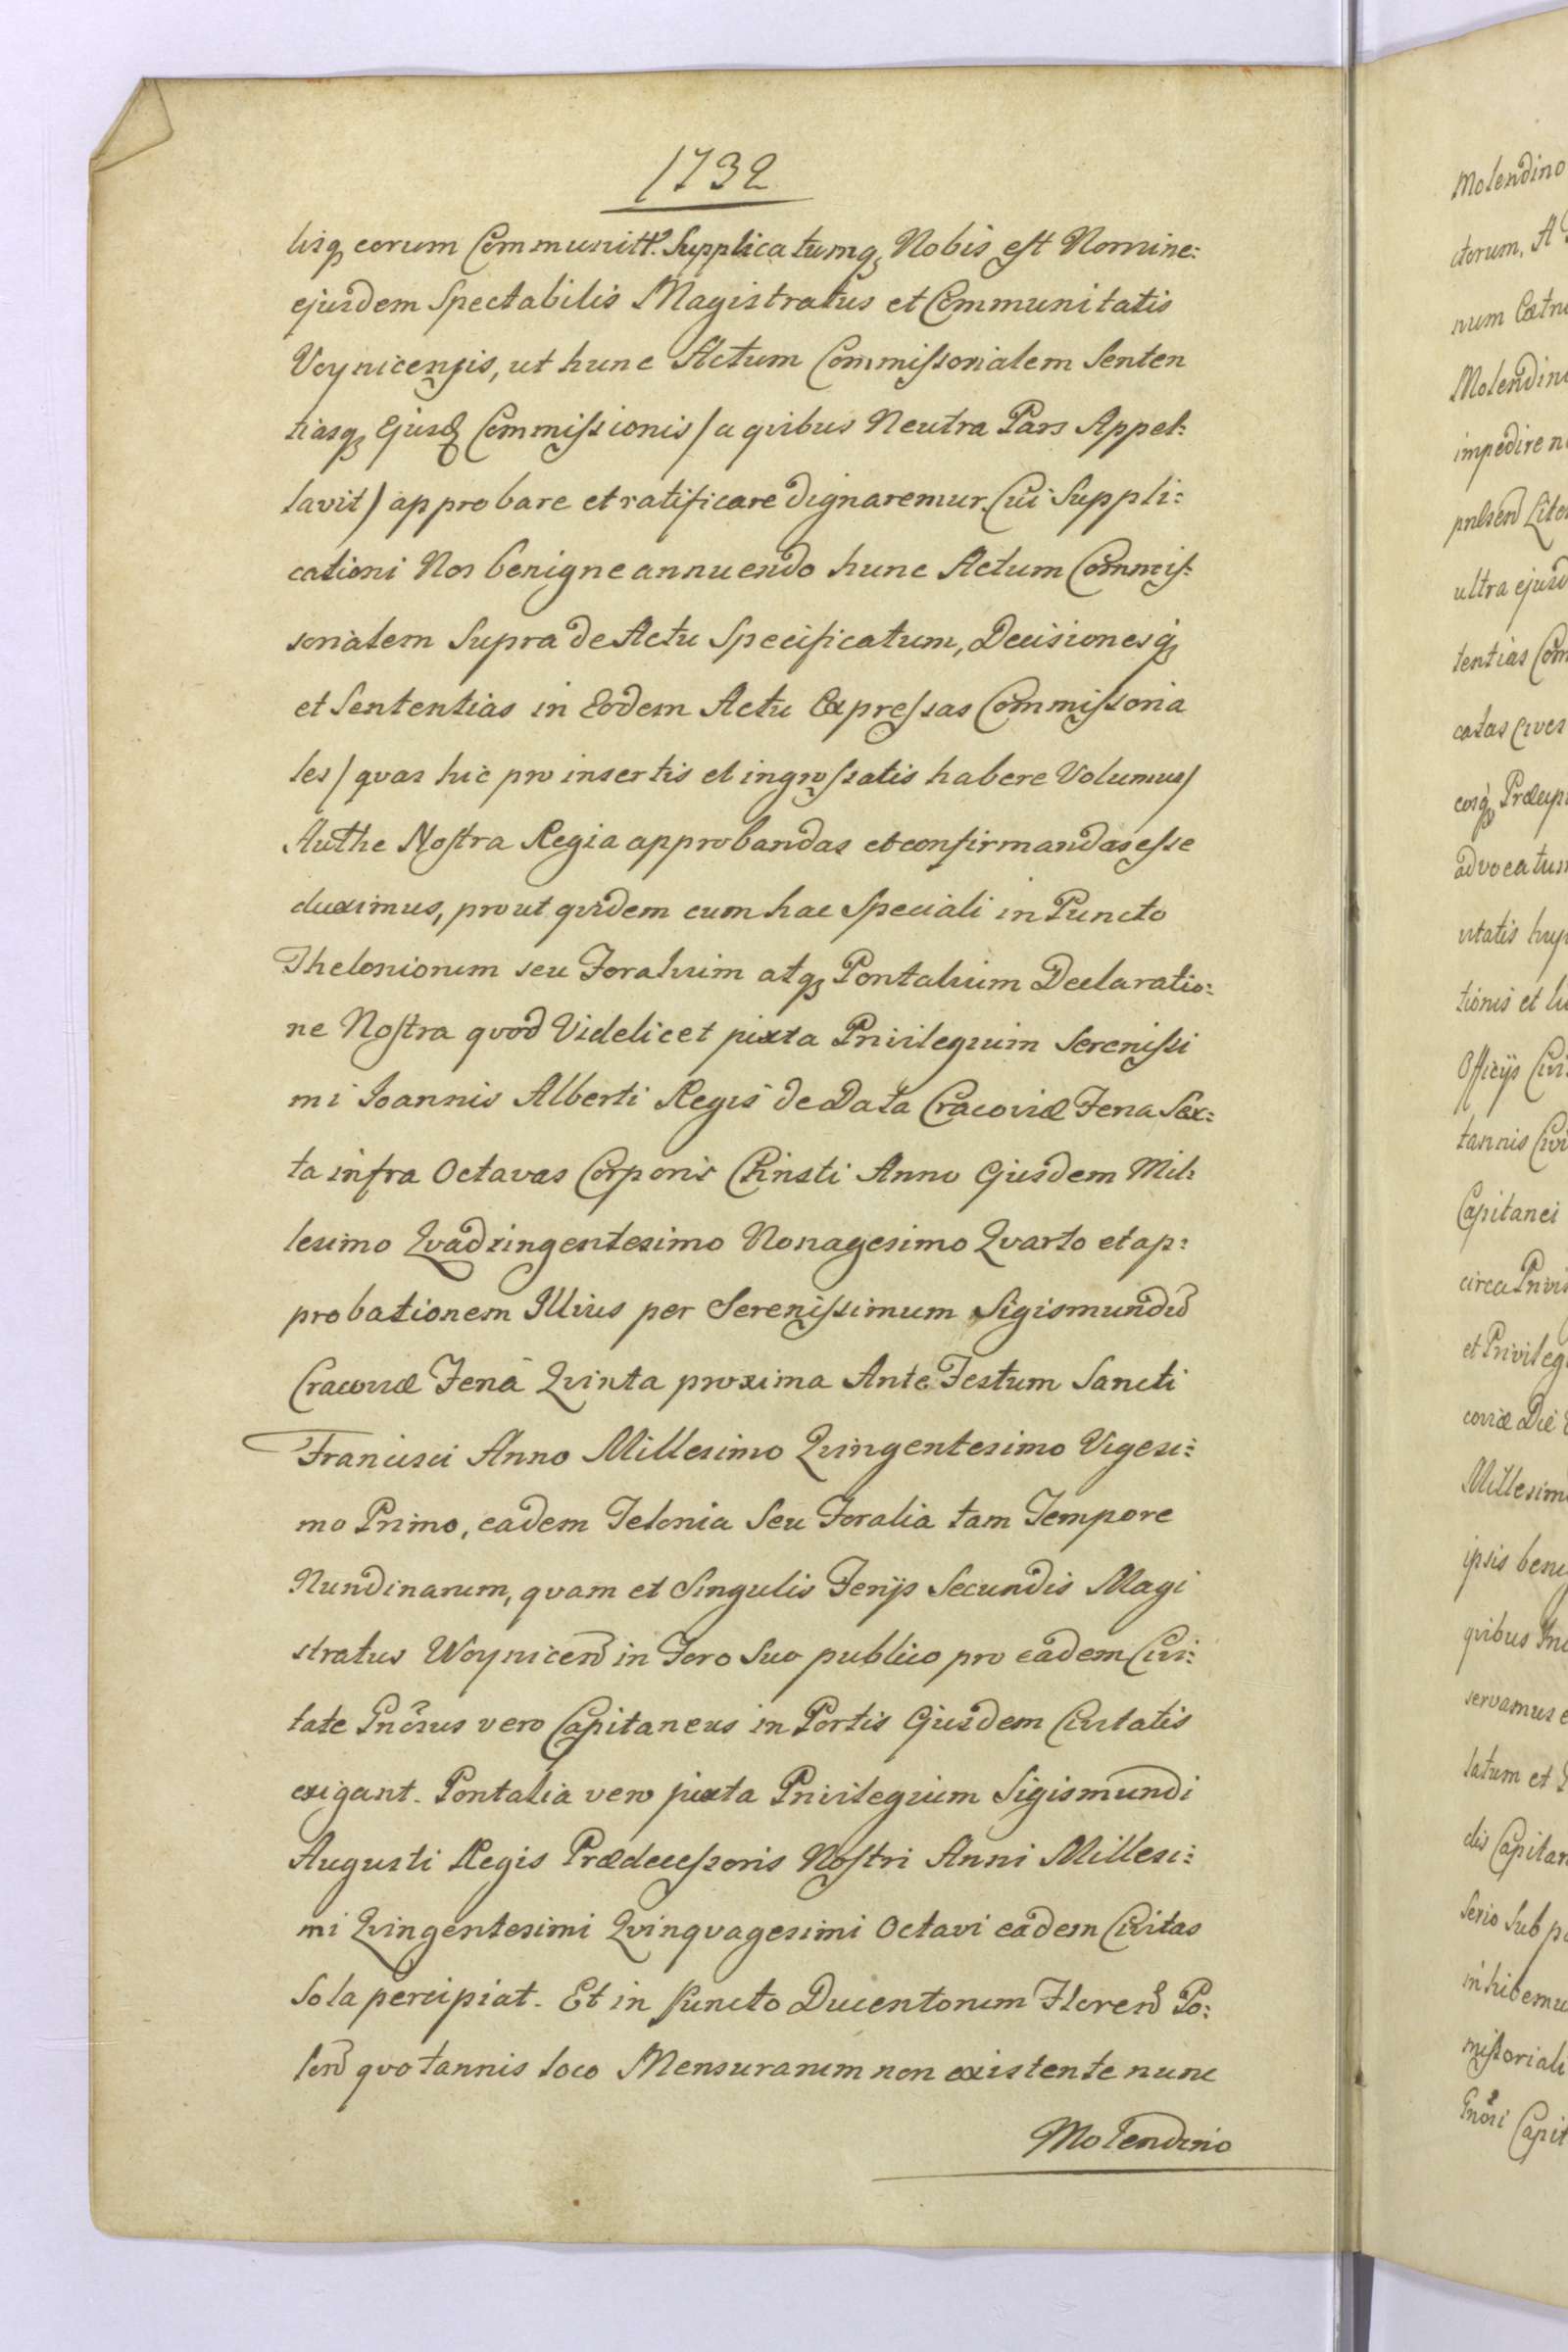 1732
lisq eorum Communitt. Supplicatumq Nobis est Nomine:
ejusdem Spectabilis Magistratus et Communitatis
Voynicensis, ut hunc Actum Commissorialem Senten
tiasq Ejusd Commissionis / a qvibus Neutra Pars Appel:
lavit / approbare et ratificare dignaremur. Cui Suppli:
cationi Nos benigne annuendo hunc Actum Commis:
sorialem Supra de Actu Specificatum, Decisionesq
et Sententias in Eodem Actu Expressas Commissoria
les / qvas hic pro insertis et ingrossatis habere Volumus /
Authe Nostra Regia approbandas et confirmandas esse
duximus, prout qvidem cum hac Speciali in Puncto
Theloniorum seu Foralium atq Pontalium Declaratio:
ne Nostra qvod Videlicet juxta Privilegium Serenissi
mi Joannis Alberti Regis de Data Cracoviæ Feria Sex:
ta infra Octavas Corporis Christi Anno Ejusdem Mil
lesimo Qvadringentesimo Nonagesimo Qvarto et ap:
probationem Illius per Serenissimum Sigismundū
Cracoviæ Feriā Qvinta proxima Ante Festum Sancti
Francisci Anno Millesimo Qvingentesimo Vigesi:
mo Primo, eadem Telonia Seu Foralia tam Tempore
Nundinarum, qvam et Singulis Ferijs Secundis Magi
stratus Woynicen in Foro Suo publico pro eadem Civi:
tate Gnosus vero Capitaneus in Portis Ejusdem Civitatis
exigant. Pontalia vero juxta Privilegium Sigismundi
Augusti Regis Prædecessoris Nostri Anni Millesi:
mi Qvingentesimi Qvinqvagesimi Octavi eadem Civitas
Sola percipiat. Et in Puncto Ducentorum Floren Po:
lon qvotannis loco Mensurarum non existente nunc
Molendino
Molendino
ctorum, A
num
Molendin
impedire n
ultra ejusd
tentias Com
catas Cives
cosq Præcipi
advocatum
vitatis huj
tionis et li
Officijs Civi
tannis Civi
Capitanei
circa Privi
et Privileg
coviæ Die
Millesim
ipsis beni
qvibus
servamus e
latum et
dis Capitan
Serio Sub
inhibemu
missoriali
Gnosi Capit